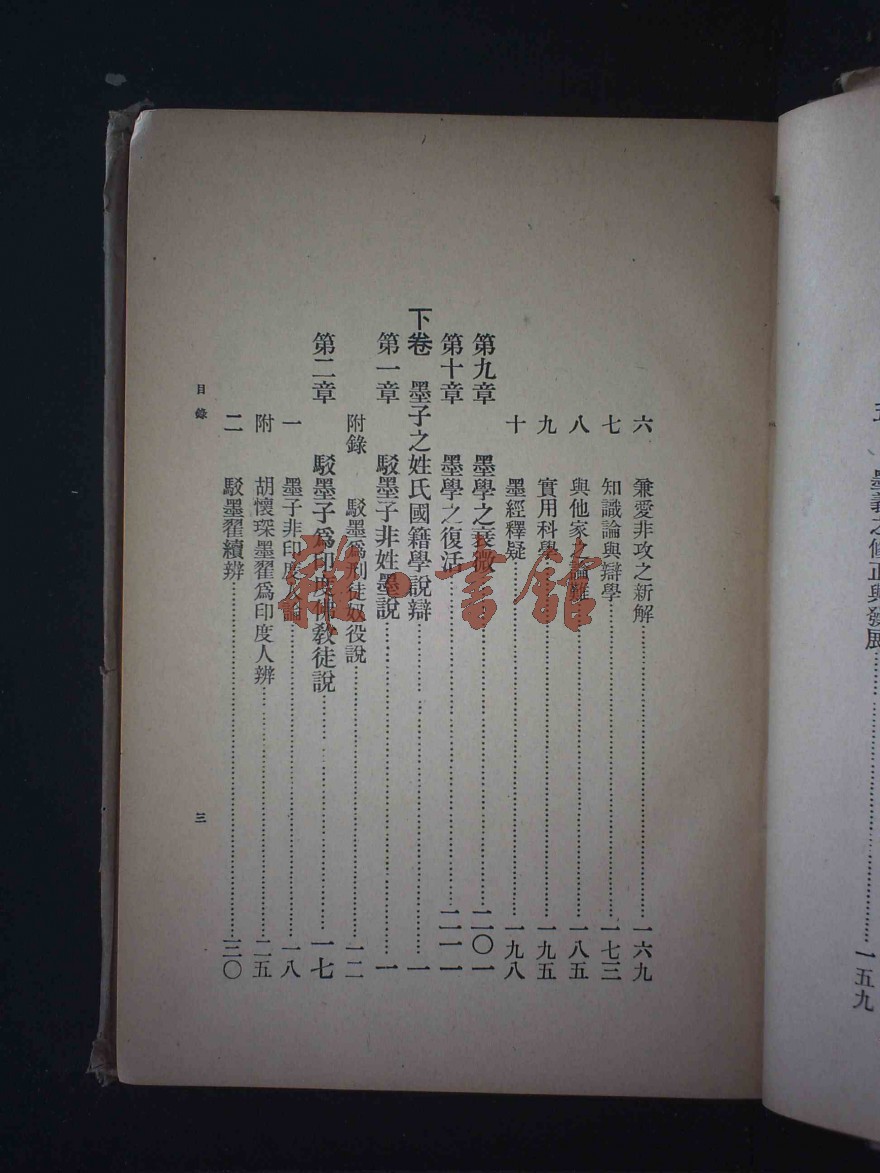 五　墨義之修正與發展……一五九
六　兼愛非攻之新解……一六九
七　知識論與辯學……一七三
八　與他家之論難……一八五
九　實用科學……一九五
十　墨經釋疑……一九八
第九章　墨學之衰微……二〇一
第十章　墨學之復活……二一一
下卷　墨子之姓氏國籍學說辯……一
第一章　駁墨子非姓墨說……一
附錄　駁墨爲刑徒奴役說……一二
第二章　駁墨子爲印度佛教徒說……一七
一　墨子非印度人論……一八
附　胡懷琛墨翟爲印度人辨……二五
二　駁墨翟續辨……三〇
目錄
三
雜·書館